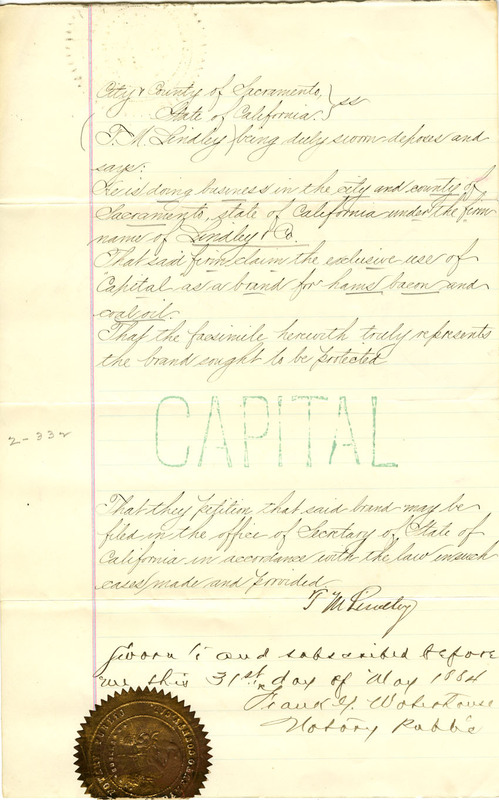 City & County of Sacramento, } ss
State of California. }
(T. M. Lindley) being duly sworn deposes and
says:
He is doing business in the city and county of
Sacramento, state of California under the firm
name of Lindley & Co.
That said firm claim the exclusive use of
Capital as a brand for hams bacon and
coal oil.
That the facsimile herewith truly represents
the brand sought to be protected
CAPITAL
2-332
That they petition that said brand may be
filed in the office of Secretary of State of
California in accordance with the law in such
cases made and provided
T M Lindley
Sworn to and subscribed before
me this 31st day of May 1884
Frank G. Waterhouse
Notary Public